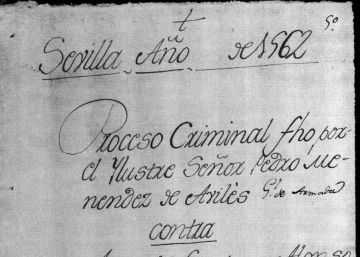 5º
Sevilla Año de 1562
Proceso Criminal fho por
el Ylustre Señor Pedro Me-
nendez de Avilès G.l de Armada
contra